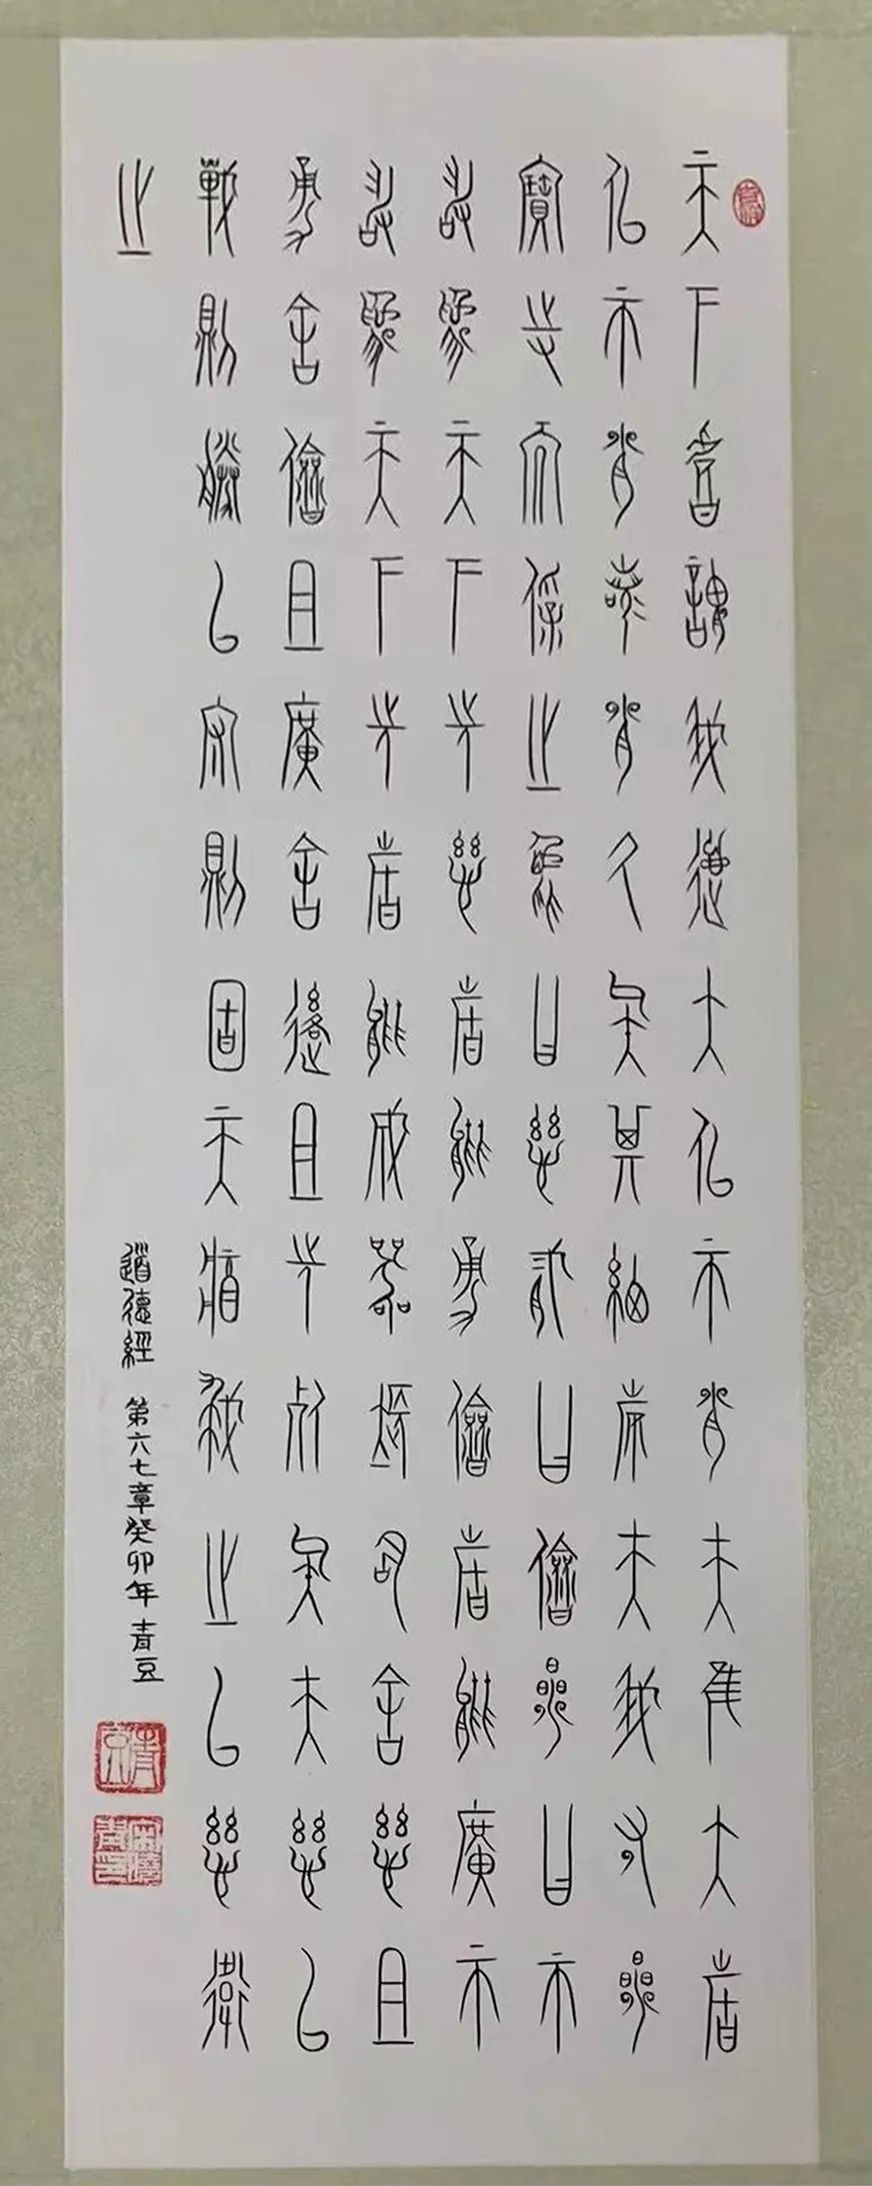 天下皆謂我德大似不肖夫唯大故
似不肖若肖久矣其細也夫我有三
寶持而保之一曰慈二曰儉三曰不
敢為天下先慈故能勇儉故能廣不
敢為天下先故能成器長今舍慈且
勇舍儉且廣舍後且先死矣夫慈以
戰則勝以守則固天將救之以慈衛
之
道德經 第六七章癸卯年 青豆